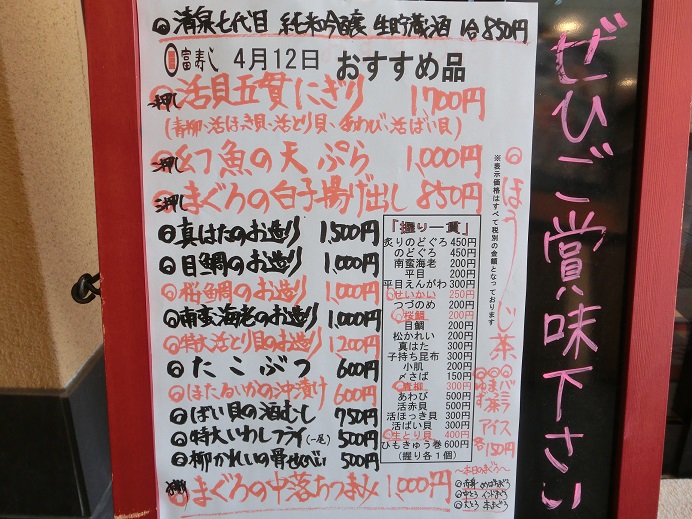 ◎清泉七代目 純米吟醸 生貯蔵酒 1合850円
富寿し 4月12日 おすすめ品
一押し 活貝五貫にぎり 1,700円
(青柳、活ほっき貝、活とり貝、あわび、活ばい貝)
一押し 幻魚の天ぷら 1,000円
一押し まぐろの白子揚げ出し 850円
◎真はたのお造り 1,500円
◎目鯛のお造り 1,000円
◎桜鯛のお造り 1,000円
◎南蛮海老のお造り 1,000円
◎特大活とり貝のお造り 1,200円
◎たこぶつ 600円
◎ほたるいかの沖漬け 600円
◎ばい貝の酒むし 750円
◎特大いわしフライ(一尾) 500円
◎柳かれいの骨せんべい 500円
まぐろの中落ちつまみ 1,000円
「握り一貫」
炙りのどぐろ 450円
のどぐろ 450円
南蛮海老 200円
平目 200円
平目えんがわ 300円
せいかい 250円
つづのめ 200円
◎桜鯛 200円
目鯛 200円
松かれい 300円
真はた 300円
子持ち昆布 300円
小肌 200円
〆さば 150円
◎青柳 300円
あわび 500円
活赤貝 500円
活ほっき貝 500円
活ばい貝 300円
◎生とり貝 400円
ひもきゅう巻 600円
(握り各1個)
※表示価格はすべて税別の金額となっております
◎ほうじ茶
◎バニラ
◎まっ茶
◎ゆず
アイス
各150円
〜本日のまぐろ〜
◎赤身 めばちまぐろ
◎中とろ インドまぐろ
◎大とろ 本まぐろ
ぜひご賞味下さい